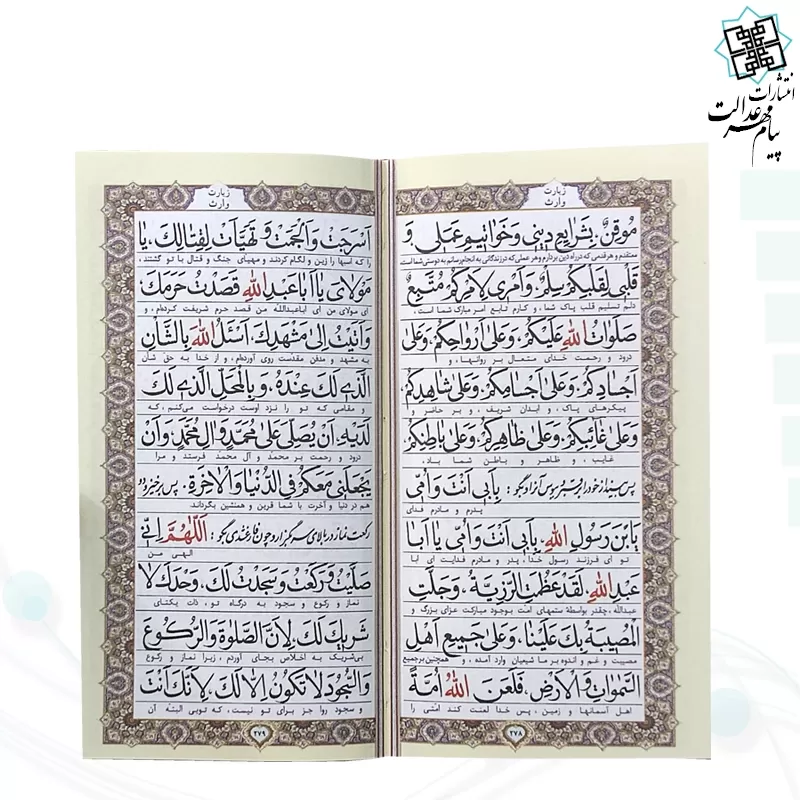 انتشارات
پیام مهر عدالت
زیارت
وارث
مُوقِنٌ، بِشَرایِعِ دینی وَخَواتیمِ عَمَلی وَ
معتقدم و هرقدمی که درراه دین بردارم وهر عملی که درزندگانی به انجام رسانم به دوستی شما است
قَلْبی لِقَلْبِکُمْ سِلْمٌ، وَاَمْری لِاَمْرِکُمْ مُتَّبِعٌ
دلم تسلیم قلب پاک شما، و کارم تابع امر مبارک شما است،
صَلَواتُ اللهِ عَلَیْکُمْ، وَعَلی اَرْواحِکُمْ، وَعَلی
درود و رحمت خدای متعال بر روانها، و
اَجْسادِکُمْ، وَعَلی اَجْسامِکُمْ، وَعَلی شاهِدِکُمْ
پیکرهای پاک، و ابدان شریف، و بر حاضر و
وَعَلی غائِبِکُمْ، وَعَلی ظاهِرِکُمْ، وَعَلی باطِنِکُمْ
غایب، و ظاهر و باطن شما باد.
پس بینداز خود را بر قبر و ببوس آن را و بگو: بِاَبی اَنْتَ وَاُمّی
پدرم و مادرم فدای
یَابْنَ رَسُولِ اللهِ، بِاَبی اَنْتَ وَاُمّی یا اَبا
تو ای فرزند رسول خدا، پدر و مادرم فدایت ای ابا
عَبْدِاللهِ، لَقَدْ عَظُمَتِ الرَّزِیَّةُ، وَجَلَّتِ
عبدالله، چقدر بواسطة ستمهای امت بوجود مبارکت عزای بزرگ و
الْمُصیبَةُ بِکَ عَلَیْنا، وَعَلی جَمیعِ اَهْلِ
مصیبت و غم و اندوه بر ما شیعیان وارد آمده، و همچنین برجمیع
السَّمواتِ وَالْاَرْضِ، فَلَعَنَ اللهُ اُمَّةً
اهل آسمانها و زمین، پس خدا لعنت کند امتی را
۲۷۸
زیارت
وارث
اَسْرَجَتْ وَاَلْجَمَتْ وَ تَهَیَّاَتْ لِقِتالِکَ، یا
را که اسبها را زین و لگام کردند و مهیای جنگ و قتال با تو گشتند،
مَوْلایَ یا اَباعَبْدِاللهِ قَصَدْتُ حَرَمَکَ
ای مولای من ای اباعبدالله من قصد حرم شریفت کرده‌ام، و
وَاَتَیْتُ اِلی مَشْهَدِکَ، اَسْئَلُ اللهَ بِالشَّاْنِ
به مشهد و مدفن مقدست روی آورده‌ام، و از خدا به حق شأن
الَّذی لَکَ عِنْدَهُ، وَ بِالْمَحَلِّ الَّذی لَکَ
و مقامی که تو را نزد اوست درخواست می‌کنم، که
لَدَیْهِ، اَنْ یُصَلِّیَ عَلی مُحَمَّدٍ وَ الِ مُحَمَّدٍ، وَاَنْ
درود و رحمت بر محمد و آل محمد فرستد و مرا
یَجْعَلَنی مَعَکُمْ فِی الدُّنْیا وَالْاخِرَةِ. پس برخیز و دو
هم در دنیا و آخرت با شما قرین و همنشین بگرداند.
رکعت نماز در بالای سر بگزار و چون فارغ شدی بگو: اَللّهُمَّ اِنّی
الهی من
صَلَّیْتُ وَ رَکَعْتُ وَ سَجَدْتُ لَکَ، وَحْدَکَ لا
نماز و رکوع و سجود به درگاه تو، ذات یکتای
شَریکَ لَکَ، لِاَنَّ الصَّلوةَ وَالرُّکُوعَ
بی‌شریک به اخلاص بجای آوردم، زیرا نماز و رکوع
وَالسُّجُودَ لا تَکُونُ اِلاّ لَکَ، لِاَنَّکَ اَنْتَ
و سجود روا جز برای تو نیست، که تویی البته آن
۲۷۹